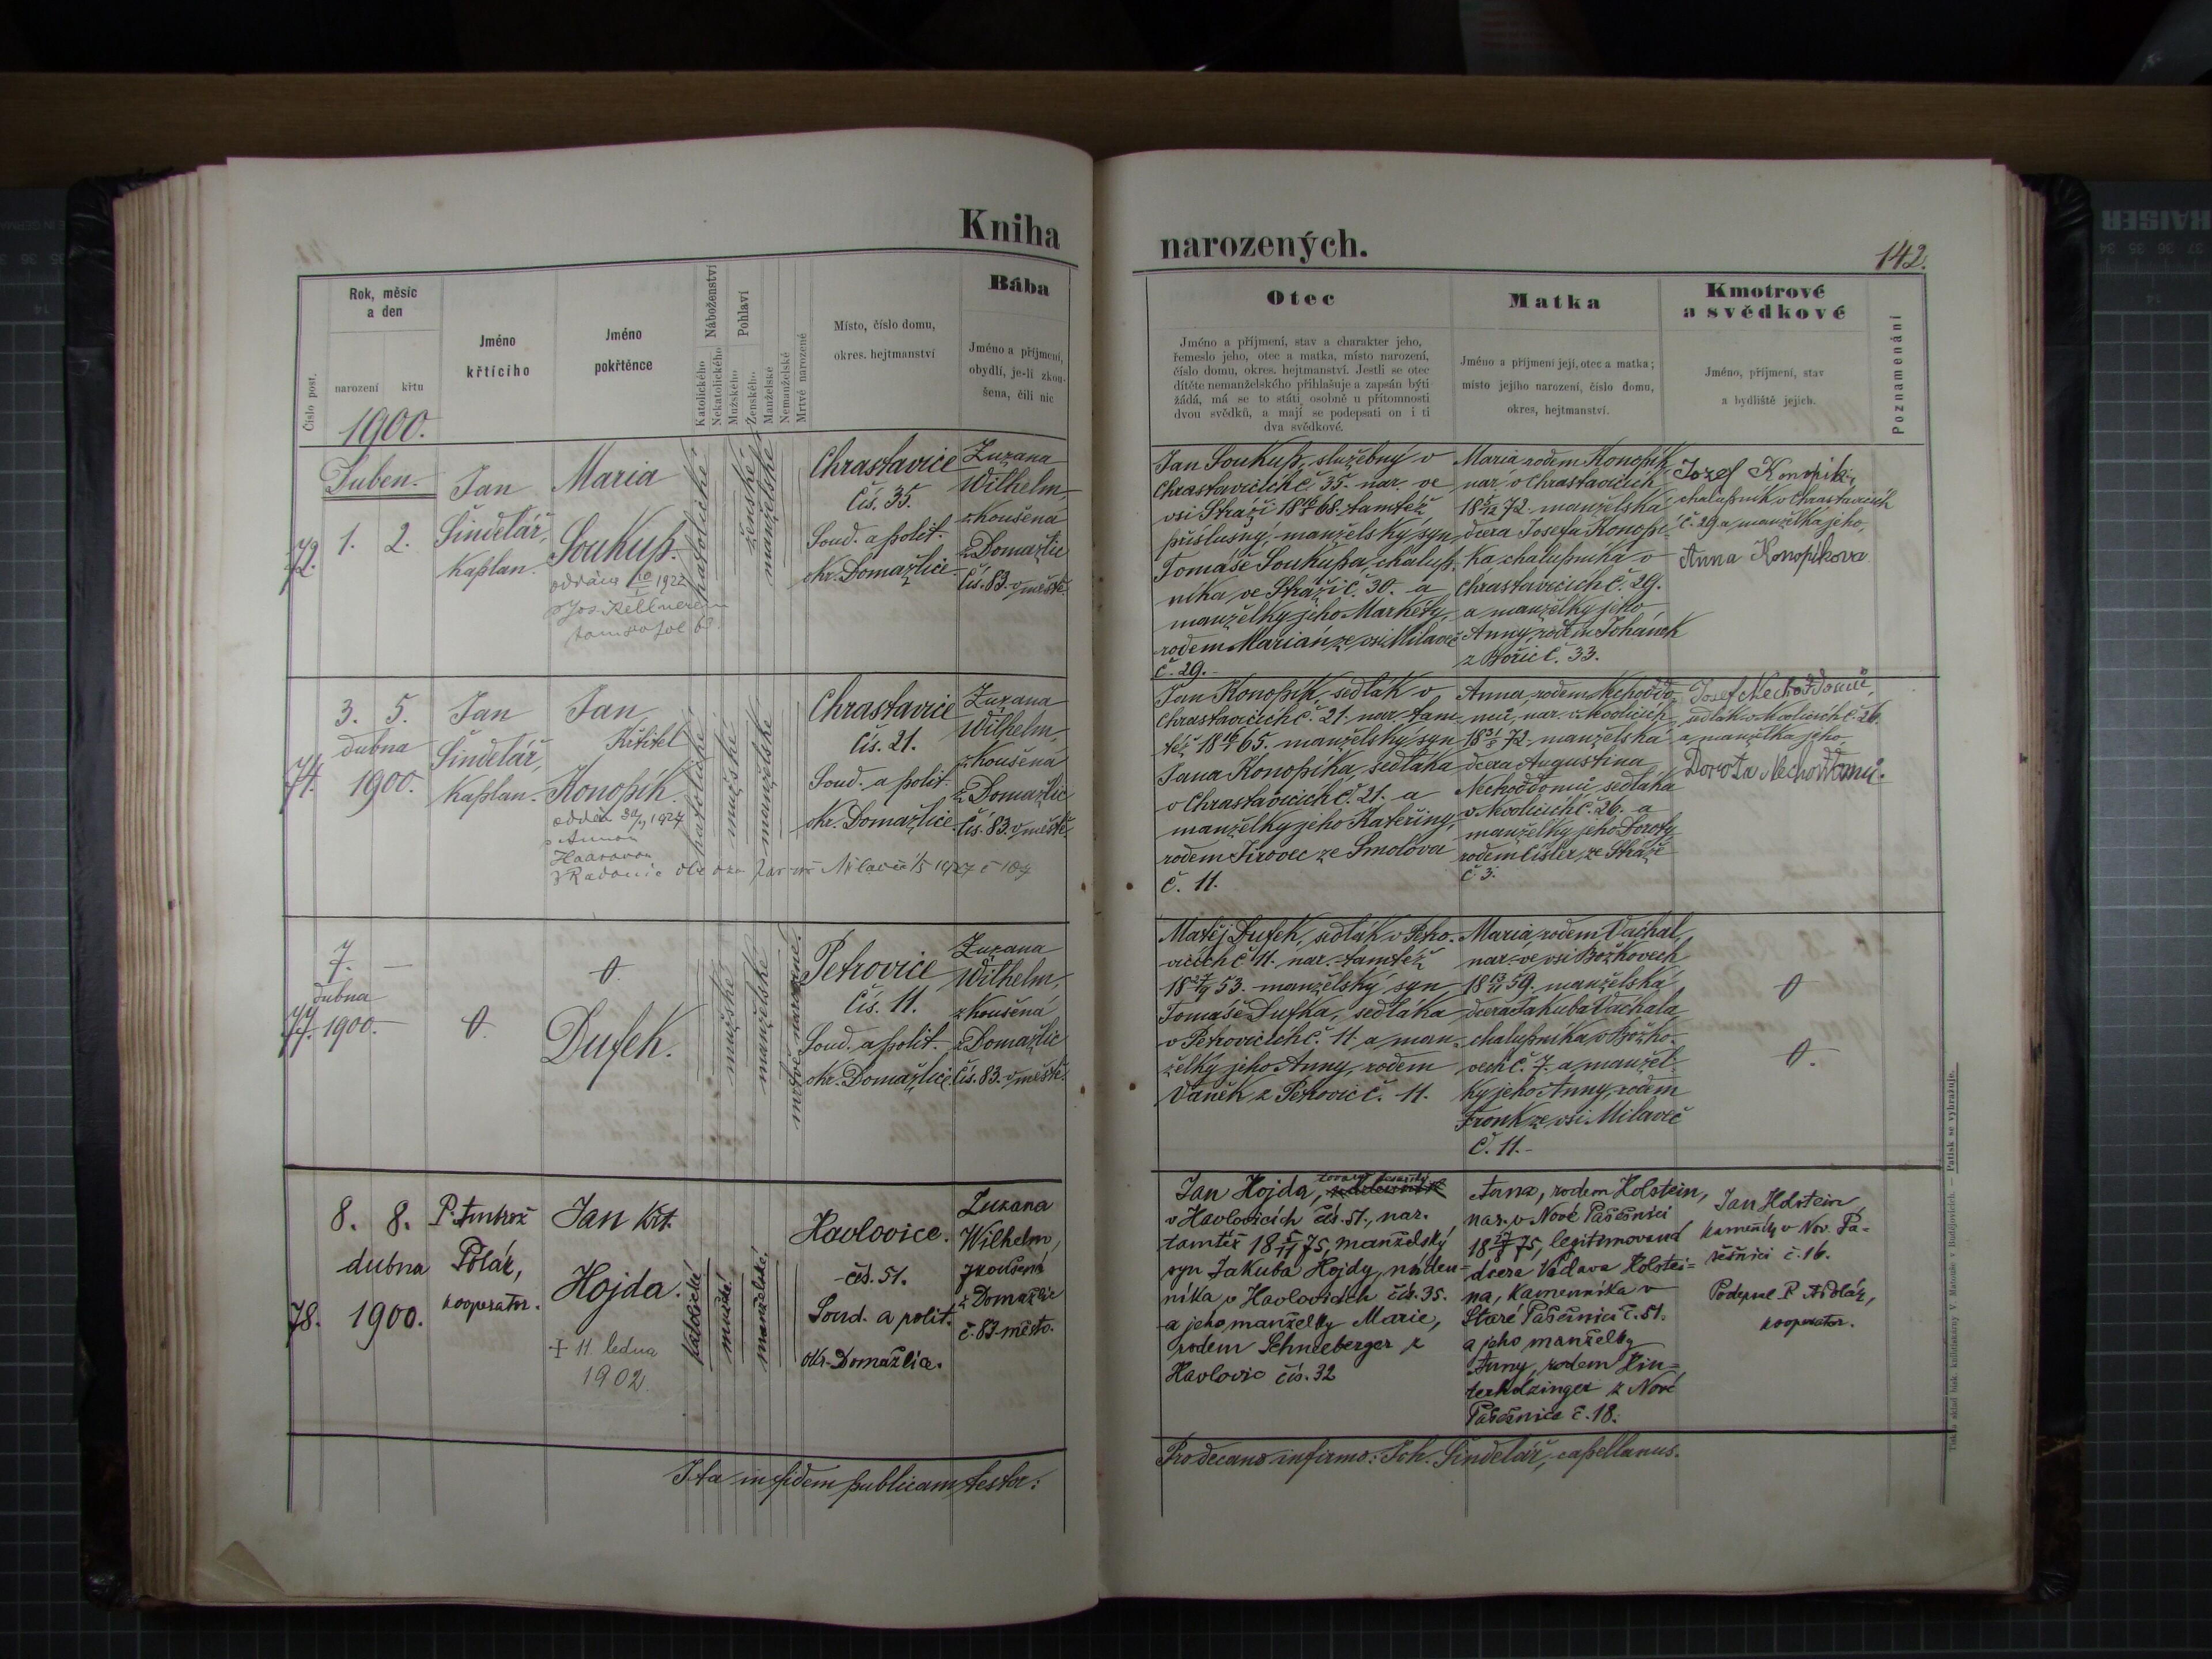 Kniha
narozených.
142.
Rok, měsíc
a den
narození
křtu
Číslo post.
Jméno
křtícího
Jméno
pokřtěnce
Náboženství
Katolického
Nekatolického
Pohlaví
Mužského
Ženského
Manželské
Nemanželské
Mrtvě narozené
Místo, číslo domu,
okres. hejtmanství
Bába
Jméno a příjmení,
obydlí, je-li zkou-
šena, čili nic
Otec
Jméno a příjmení, stav a charakter jeho,
řemeslo jeho, otec a matka, místo narození,
číslo domu, okres. hejtmanství. Jestli se otec
dítěte nemanželského přihlašuje a zapsán býti
žádá, má se to státi osobně u přítomnosti
dvou svědků, a mají se podepsati on i ti
dva svědkové.
Matka
Jméno a příjmení její, otec a matka;
místo jejího narození, číslo domu,
okres, hejtmanství.
Kmotrové
a svědkové
Jméno, příjmení, stav
a bydliště jejich.
Poznamenání
1900.
Duben.
72.
1. 2.
Jan
Šindelář,
kaplan.
Maria
Soukup.
1922
katolické
ženské
manželské
Chrastavice
čís. 35.
Soud. a polit.
okr. Domažlice.
Zuzana
Wilhelm,
zkoušená
z Domažlic
čís. 83. v městě.
Jan Soukup, služebný v
Chrastavicích č. 35. nar. ve
vsi Stráži 18 68. tamtéž
příslušný, manželský syn
Tomáše Soukupa, chalup-
níka ve Stráži č. 30. a
manželky jeho Markéty,
rodem Marian ze vsi Milavče
č. 29.
Maria rodem Konopík,
nar. v Chrastavicích
18 72. manželská
dcera Josefa Konopí-
ka, chalupníka v
Chrastavicích č. 29.
a manželky jeho
Anny, rodem Johánek
z Bořic č. 33.
Jozef Konopík,
chalupník v Chrastavicích
č. 29 a manželka jeho,
Anna Konopikova
74.
3. 5.
dubna
1900.
Jan
Šindelář,
kaplan.
Jan
Křtitel
Konopík.
1927
katolické
mužské
manželské
Chrastavice
čís. 21.
Soud. a polit.
okr. Domažlice.
Zuzana
Wilhelm,
zkoušená
z Domažlic
čís. 83. v městě.
Jan Konopík, sedlák v
Chrastavicích č. 21. nar. tam-
též 18 65. manželský syn
Jana Konopíka, sedláka
v Chrastavicích č. 21. a
manželky jeho Kateřiny,
rodem Jirovec ze Smolova
č. 11.
Anna, rodem Nechoďdo-
mů, nar. v Nevolicích
18 72. manželská
dcera Augustina
Nechoďdomů, sedláka
v Nevolicích č. 26. a
manželky jeho Doroty
rodem Císler, ze Stráže
č. 3.
Jozef Nechoďdomů,
sedlák v Nevolicích č. 26.
a manželka jeho
Dorota Nechoďdomů.
77.
7. —
dubna
1900. —
0.
0.
Dufek.
mužské
manželské
mrtvě narozené.
Petrovice
čís. 11.
Soud. a polit.
okr. Domažlice.
Zuzana
Wilhelm,
zkoušená
z Domažlic
čís. 83. v městě.
Matěj Dufek, sedlák v Petro-
vicích č. 11. nar. tamtéž
18 53. manželský syn
Tomáše Dufka, sedláka
v Petrovicích č. 11 a man-
želky jeho Anny, rodem
Vaněk z Petrovic č. 11.
Maria, rodem Váchal,
nar. ve vsi Božkovech
18 59. manželská
dcera Jakuba Váchala,
chalupníka v Božko-
vech č. 7. a manžel-
ky jeho Anny, rodem
Fronk ze vsi Milavče
č. 11.
0
0.
78.
8. 8.
dubna
1900.
P. Ambrož
Polák,
kooperator.
Jan Křt.
Hojda.
+ 11. ledna
1902.
katolické
mužské
manželské.
Havlovice.
čís. 51.
Soud. a polit.
okr. Domažlice.
Zuzana
Wilhelm,
zkoušená
z Domažlic
č. 83 město.
Jan Hojda,
v Havlovicích čís. 51., nar.
tamtéž 18 5/11 75, manželský
syn Jakuba Hojdy, náden-
níka v Havlovicích čís. 35.
a jeho manželky Marie,
rodem Schneeberger z
Havlovic čís. 32
Anna, rodem Holstein,
nar. v Nové Pasečnici
18 75, legitimovaná
dcera Václava Holstei=
na, kameníka v
Staré Pasečnici č. 51.
a jeho manželky
Anny, rodem Hin=
terholzinger z Nové
Pasečnice č. 18.
Jan Holstein
kameník v Nov. Pa-
sečnici č. 16.
Podepsal P. A. Polák,
kooperator.
Ita in fidem publicam testor:
Pro decano infirmo: Joh. Šindelář, capellanus.
Tisk a sklad bisk. knihtiskárny V. Matouše v Budějovicích. — Patisk se vyhražuje.